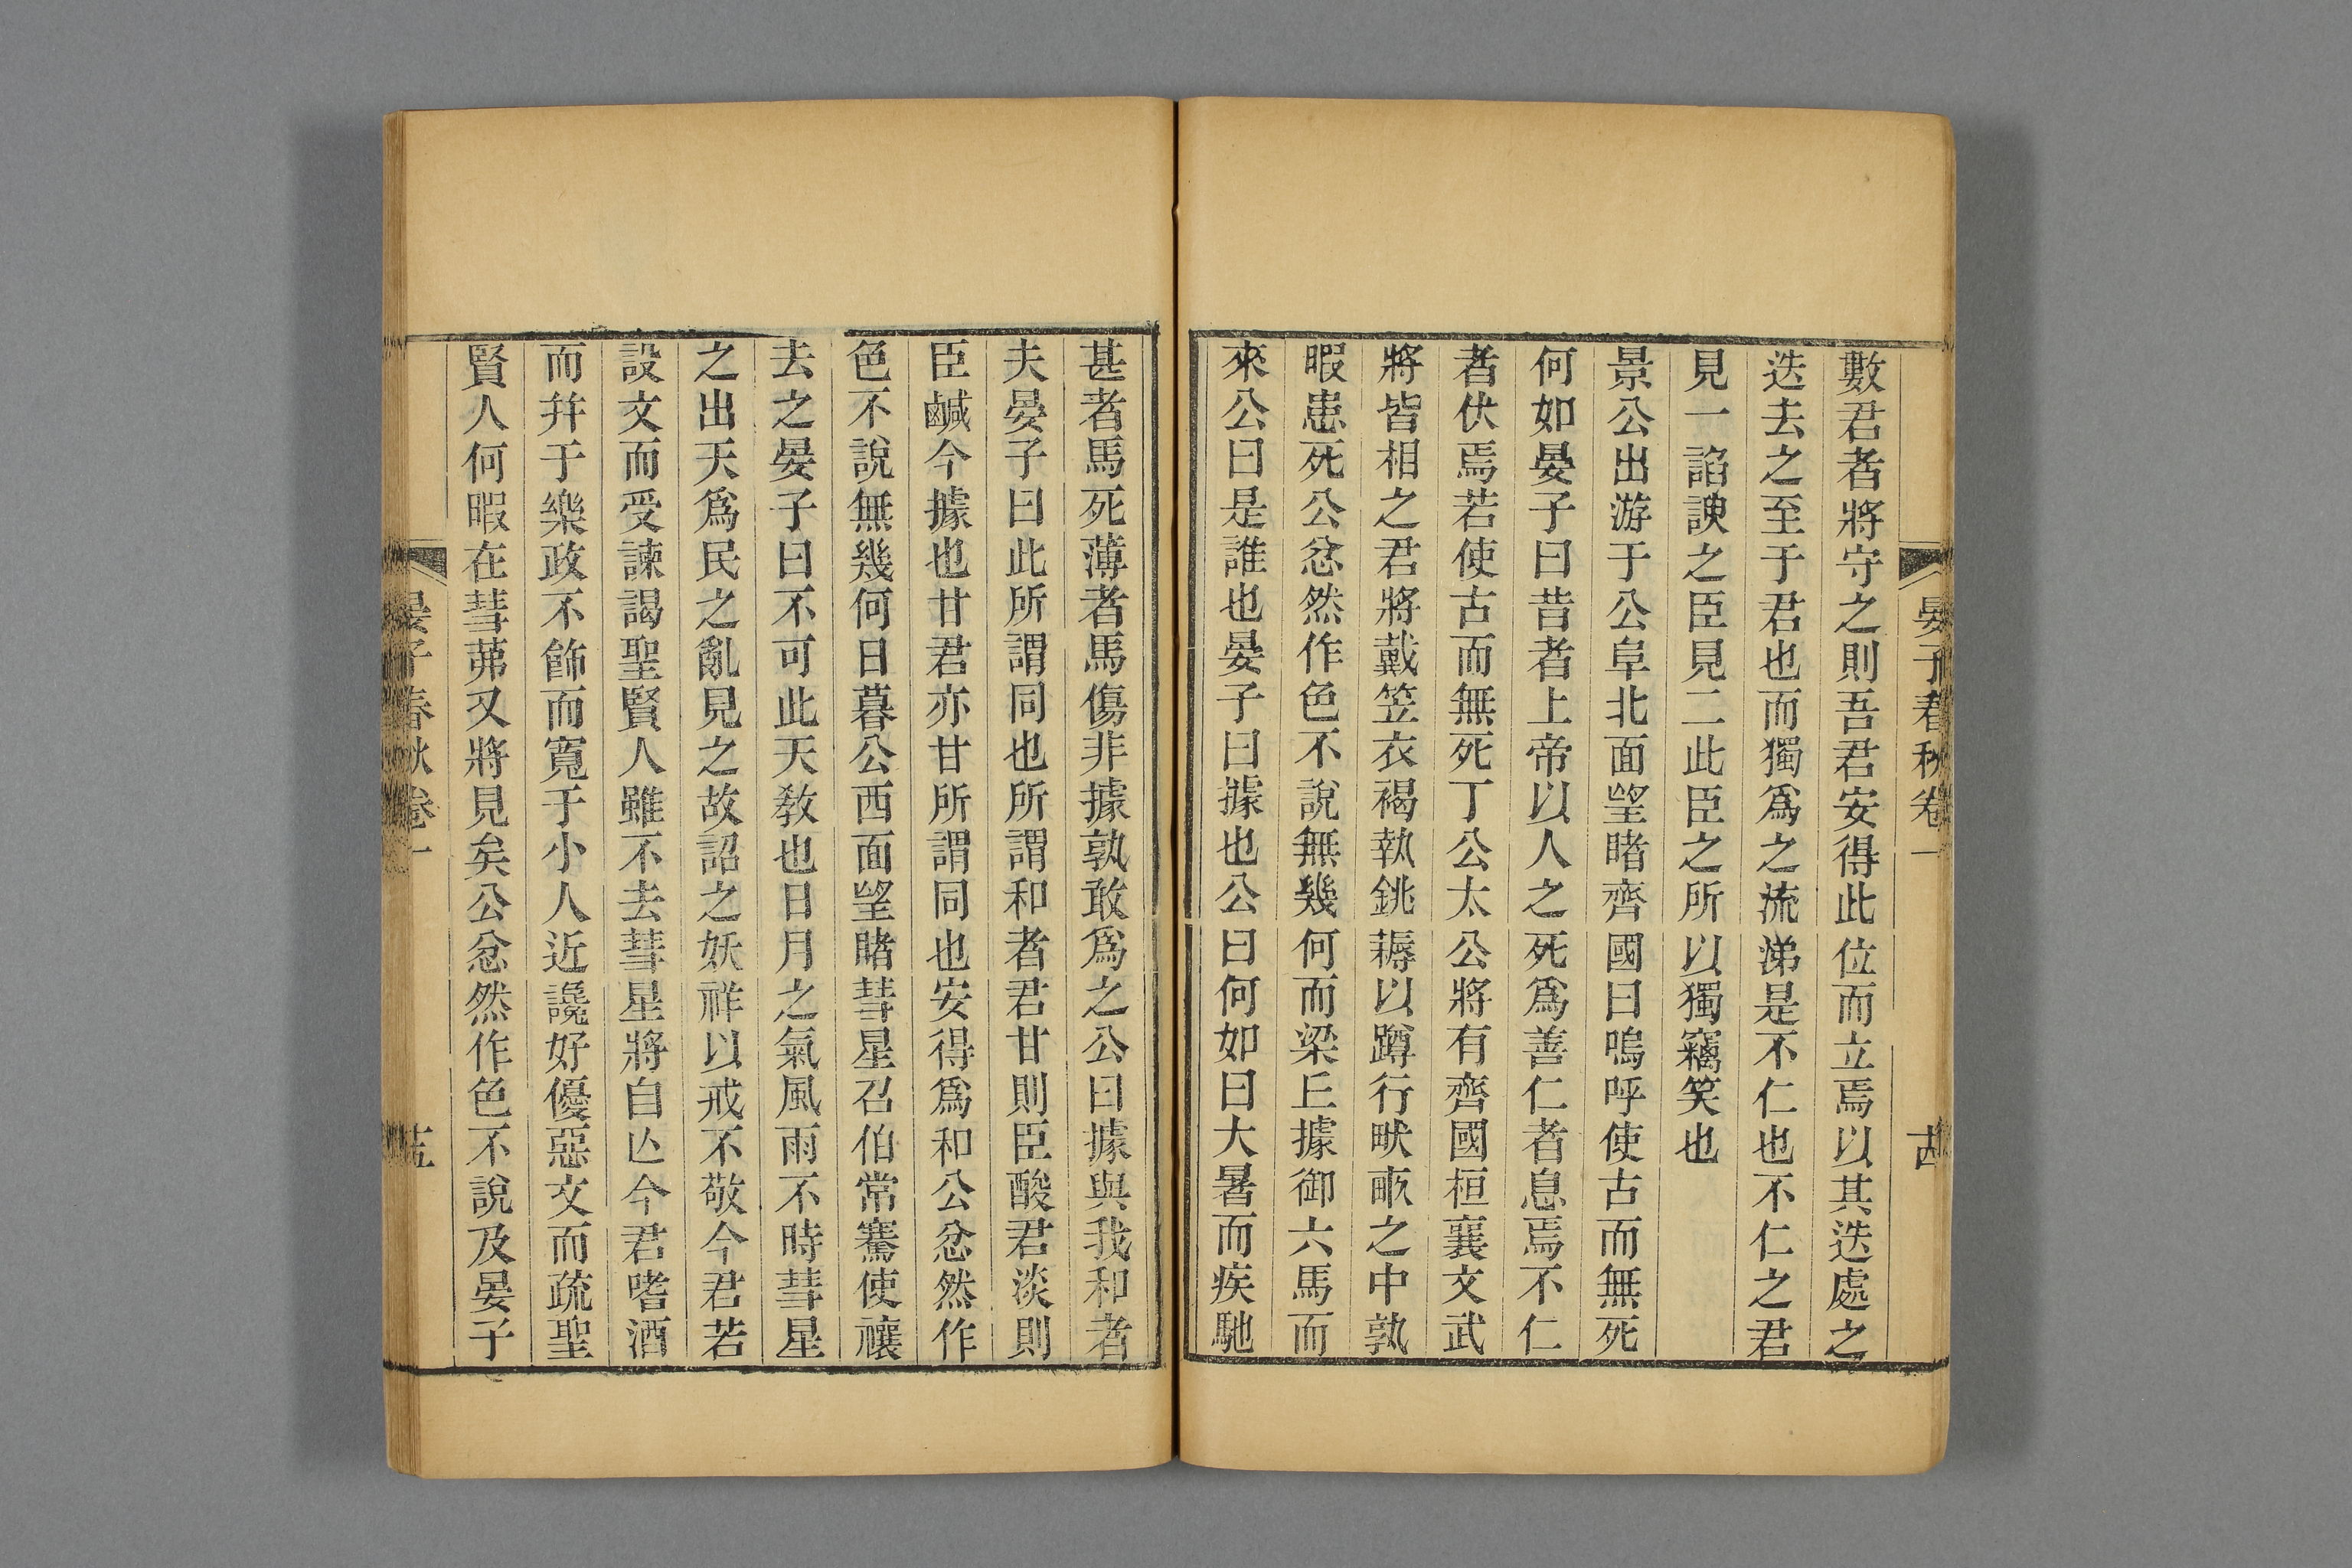 晏子春秋卷一
古
數君者將守之則吾君安得此位而立焉以其迭處之
迭去之至于君也而獨爲之流涕是不仁也不仁之君
見一諂諛之臣見二此臣之所以獨竊笑也
景公出游于公阜北面望睹齊國曰嗚呼使古而無死
何如晏子曰昔者上帝以人之死爲善仁者息焉不仁
者伏焉若使古而無死丁公太公將有齊國桓襄文武
將皆相之君將戴笠衣褐執銚耨以蹲行畎畝之中孰
暇患死公忿然作色不說無幾何而梁丘據御六馬而
來公曰是誰也晏子曰據也公曰何如曰大暑而疾馳
甚者馬死薄者馬傷非據孰敢爲之公曰據與我和者
夫晏子曰此所謂同也所謂和者君甘則臣酸君淡則
臣鹹今據也甘君亦甘所謂同也安得爲和公忿然作
色不說無幾何日暮公西面望睹彗星召伯常騫使禳
去之晏子曰不可此天敎也日月之氣風雨不時彗星
之出天爲民之亂見之故詔之妖祥以戒不敬今君若
設文而受諫謁聖賢人雖不去彗星將自亾今君嗜酒
而幷于樂政不飾而寬于小人近讒好優惡文而疏聖
賢人何暇在彗茀又將見矣公忿然作色不說及晏子
晏子春秋卷一